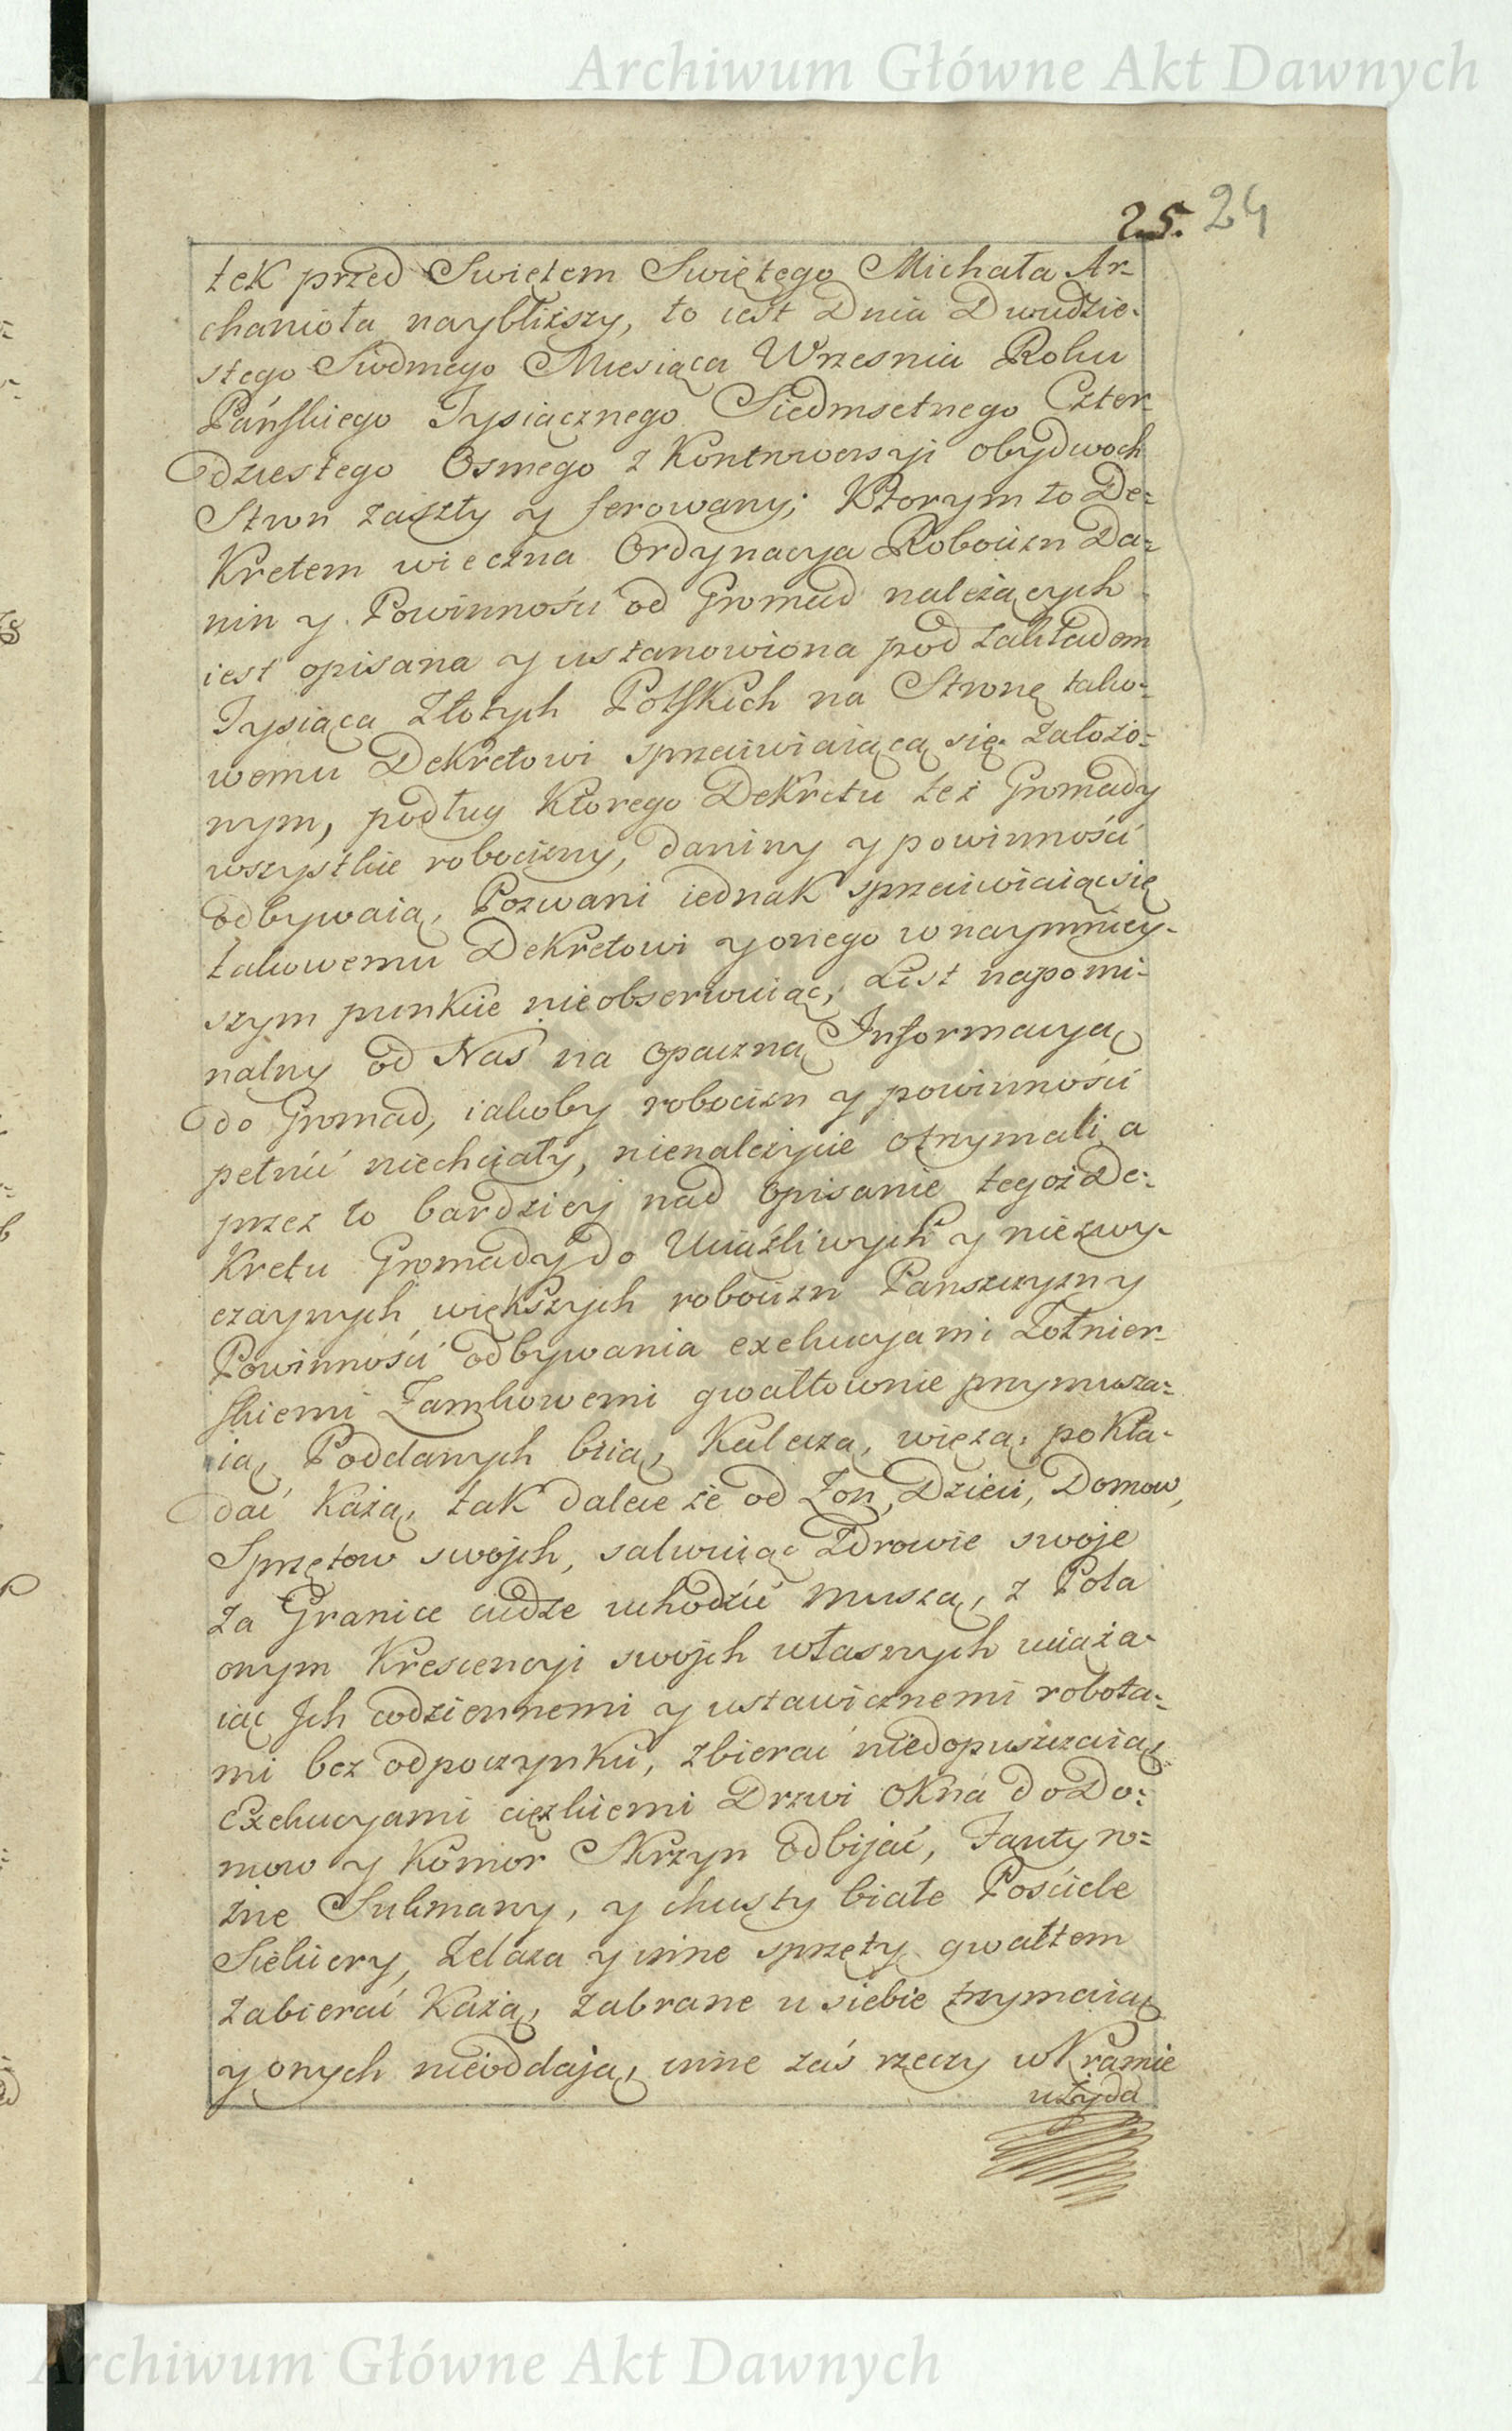 Archiwum Główne Akt Dawnych
25. 24
tek przed Swiętem Swiętego Michała Ar-
chanioła naybliższy, to iest Dnia Dwudzie-
stego Siodmego Miesiąca Wrzesnia Roku
Pańskiego Tysiącznego Siedmsetnego Czter-
dziestego Osmego z Kontrowersyi obydwoch
Stron zaszły y ferowany; Ktorym to De-
Kretem wieczna Ordynacya Robocizn Da-
nin y Powinności od Gromad należących
iest opisana y ustanowiona pod zakładem
Tysiąca Złotych Polskich na Stronę tako-
wemu Dekretowi sprzeciwiaiącą się założo-
nym, podług Ktorego Dekretu też Gromady
wszystkie robocizny, daniny y powinności
odbywaią, Pozwani iednak sprzeciwiaiąc się
takowemu Dekretowi y onego w naymniey-
szym punkcie nieobserwuiąc, List napomi-
nalny od Nas na opaczną Informacyą
do Gromad, iakoby robocizn y powinności
pełnić niechciały, nienależycie otrzymali, a
przez to bardziey nad opisanie tegoż De-
Kretu Gromady do Uciążliwych y niezwy-
czaynych większych robocizn Panszczyzny
Powinności odbywania exekucyami Żołnier-
skiemi Zamkowemi gwałtownie przymusza-
ią, Poddanych biią, Kaleczą, więżą, pokła-
dać Każą, tak dalece że od Żon, Dzieci, Domow,
Sprzętow swojch, salwuiąc Zdrowie swoje
za Granice cudze uchodzić muszą, z Pola
onym Krescencyi swojch własnych uciąża-
iąc Jch codziennemi y ustawicznemi robota-
mi bez odpoczynku, zbierać niedopuszczaią,
Exekucyami ciężkiemi Drzwi Okna do Do-
mow y Komor Skrzyn odbijać, Fanty ro-
żne Sukmany, y chusty białe Pościele
Siekiery, Żelaza y inne sprzęty gwałtem
zabierać Każą, zabrane u siebie trzymaią
y onych nieoddają, inne zaś rzeczy w Kramie
u Żyda
Archiwum Główne Akt Dawnych